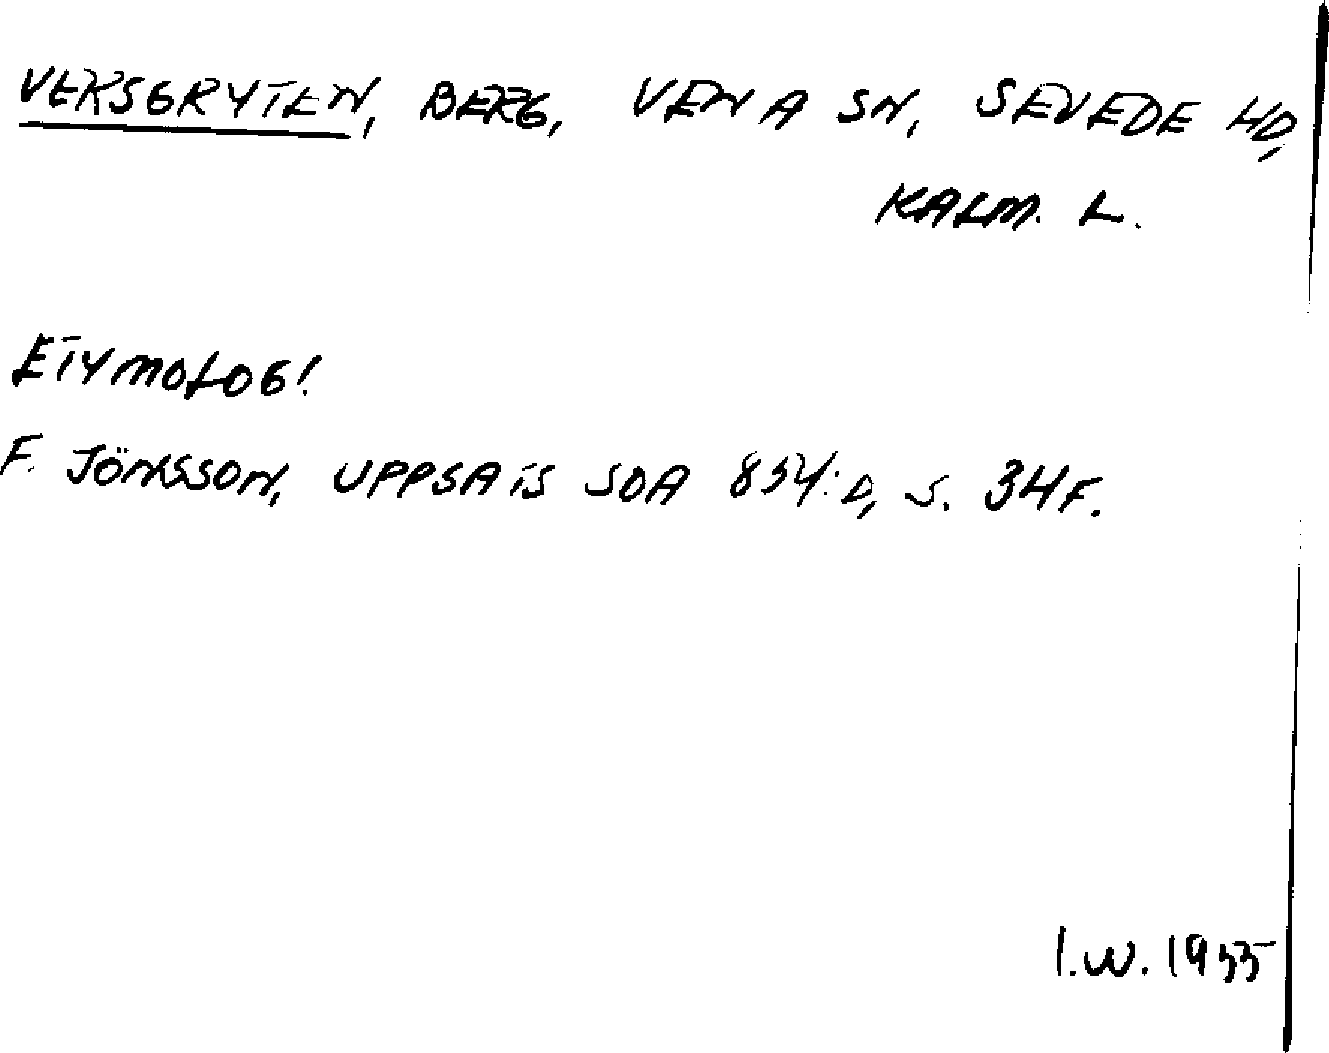 VERSGRYTEN, BERG, VENA SN, SEVEDE HD,
KALM. L.
ETYMOLOG!
F. JÖNSSON, UPPSATS SOA 854:D, S. 34F.
I.W. 1955